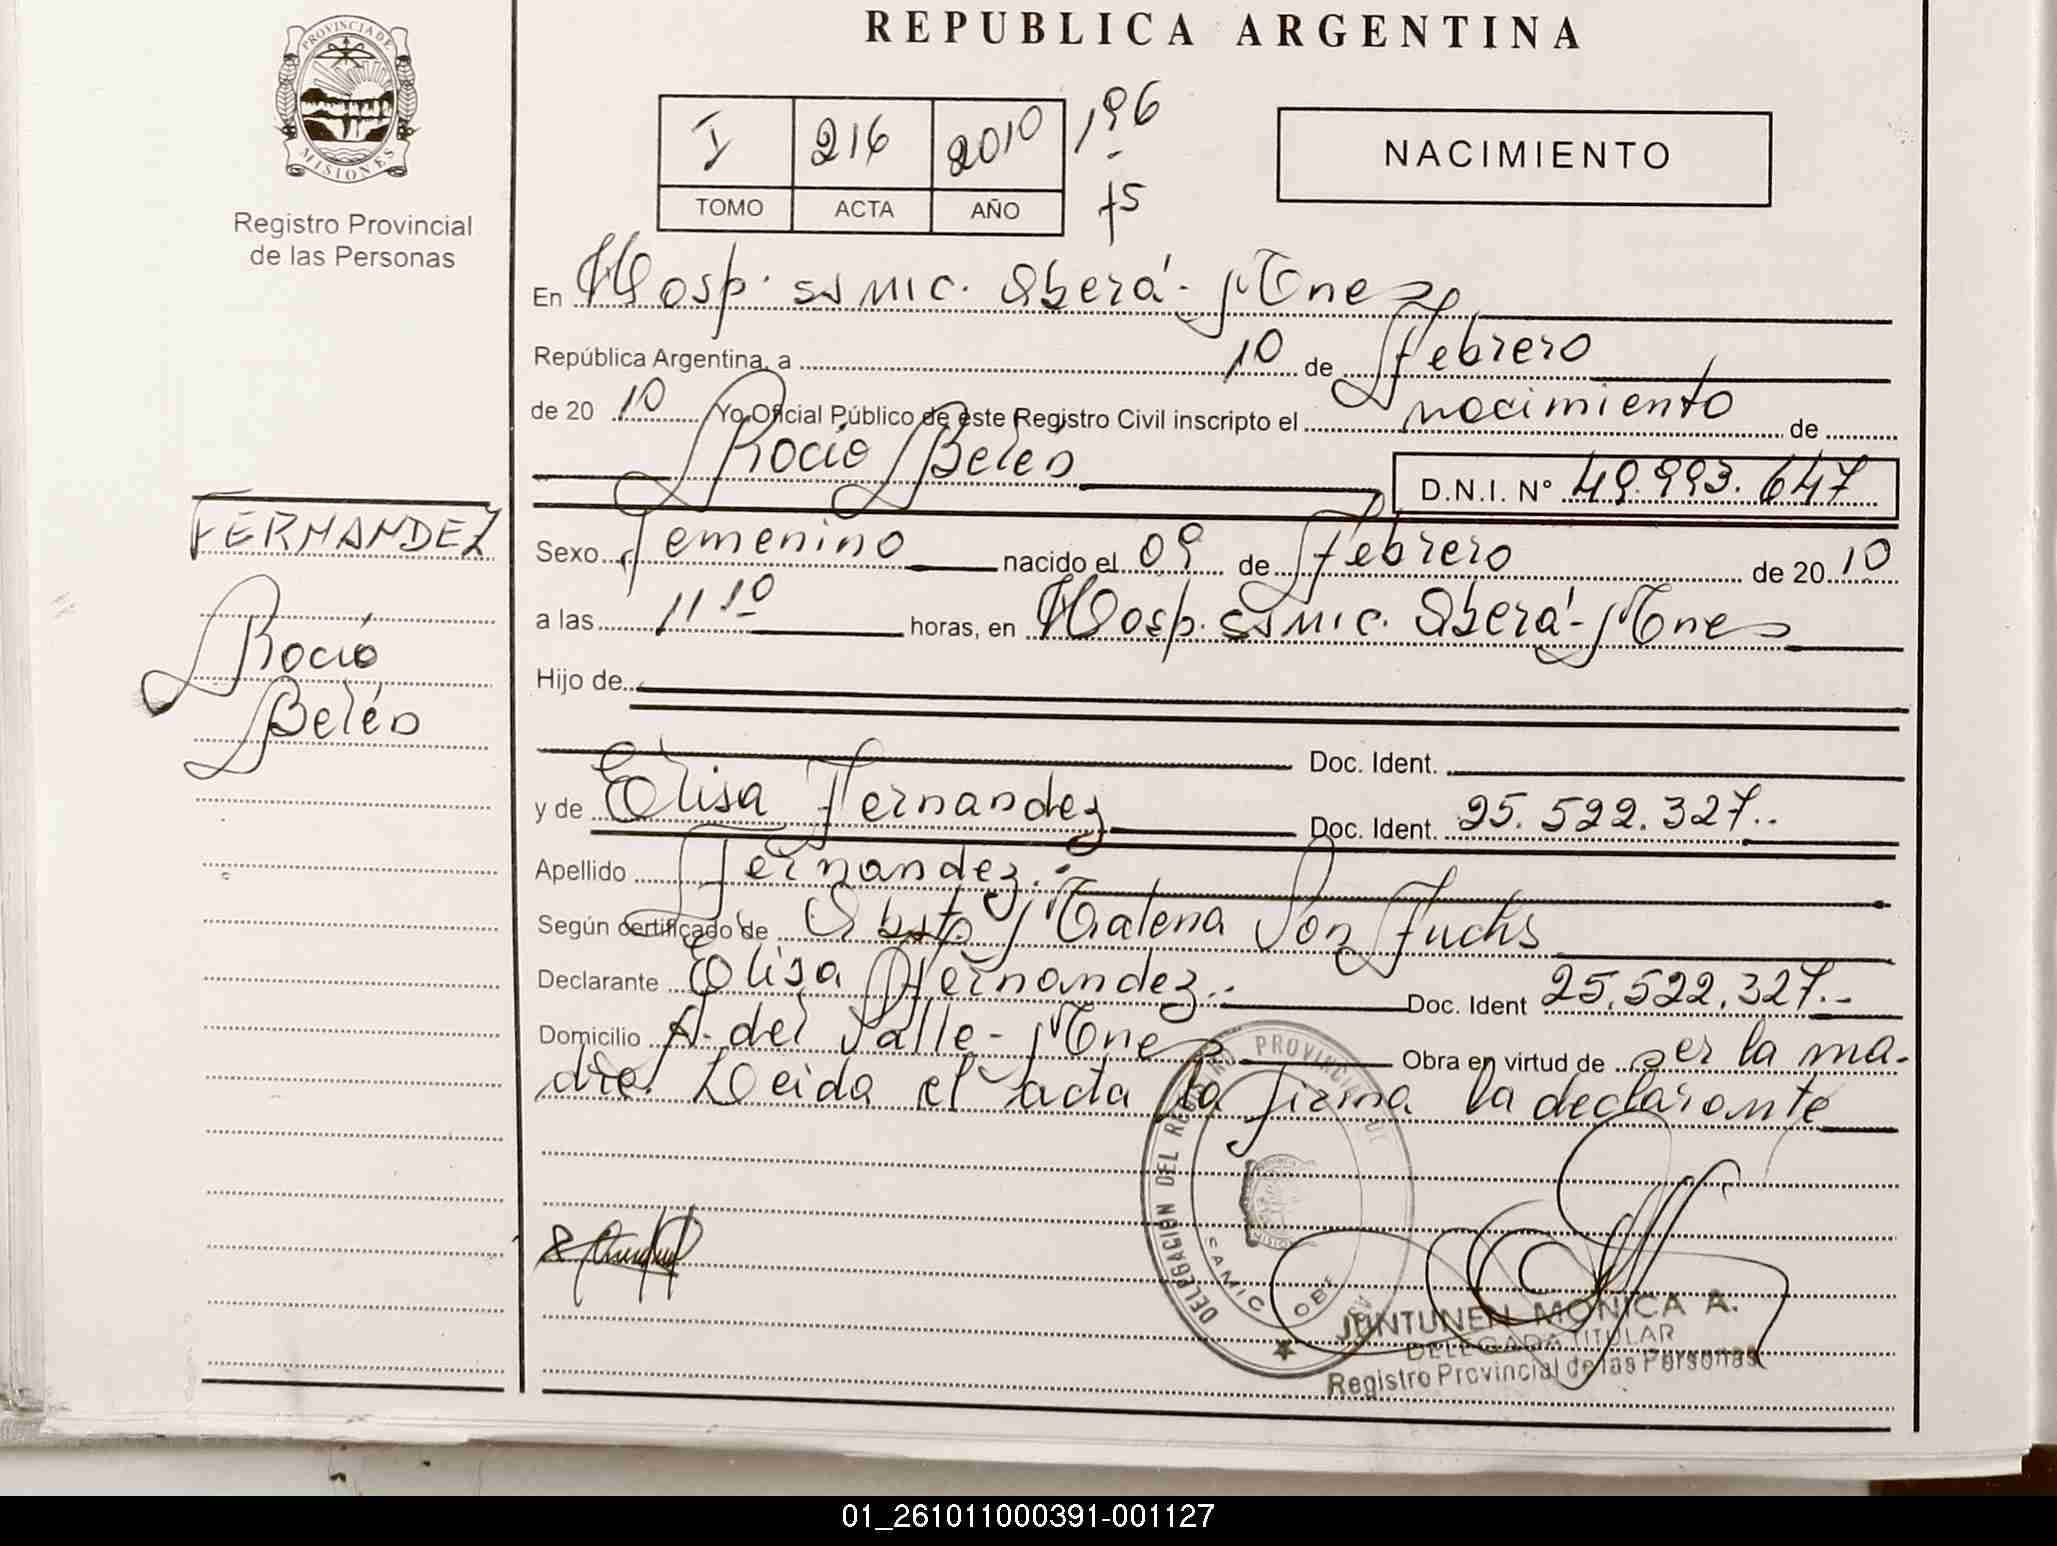 REPUBLICA ARGENTINA
PROVINCIA DE MISIONES
Registro Provincial
de las Personas
I 216 2010 196
TOMO ACTA AÑO fs
NACIMIENTO
En Hosp. SAMIC. Oberá - Mnes
República Argentina, a 10 de Febrero
de 20 10 Yo Oficial Público de este Registro Civil inscripto el nacimiento de
Rocio Belén
D.N.I. N° 49.993.647
FERNANDEZ
Rocio
Belén
Sexo Femenino nacido el 09 de Febrero de 20 10
a las 11 10 horas, en Hosp. SAMIC. Oberá - Mnes
Hijo de
Doc. Ident.
y de Elisa Fernandez Doc. Ident. 25.522.327..
Apellido Fernandez.-
Según certificado de Obsta Malena Von Fuchs
Declarante Elisa Fernandez.. Doc. Ident 25.522.327.-
Domicilio A. del Valle - Mnes Obra en virtud de ser la ma-
dre. Leida el acta la firma la declarante
DELEGACIÓN DEL REGISTRO PROVINCIAL DE
SAMIC
JUNTUNEN MONICA A.
DELEGADA TITULAR
Registro Provincial de las Personas
01_261011000391-001127